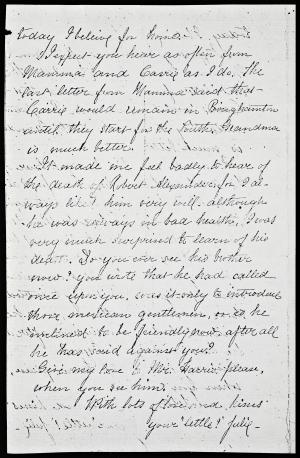 today I believe for home.
I expect you hear as often from
Mamma and Carrie as I do. The
last letter from Mamma said that
Carrie would remain in Binghamton
until they start for the South, Grandma
is much better.
It made me feel badly to hear of
the death of Robert Alexander for I al-
ways liked him very well, although
he was always in bad health, I was
very much surprised to learn of his
death. Do you ever see his brother
now? you wrote that he had called
once upon you, was it only to introduce
those mexican gentlemen, or is he
inclined to be friendly now, after all
he has said against you?
Give my love to Mr. please,
when you see him.
With lots of love and kisses
your "little" July-